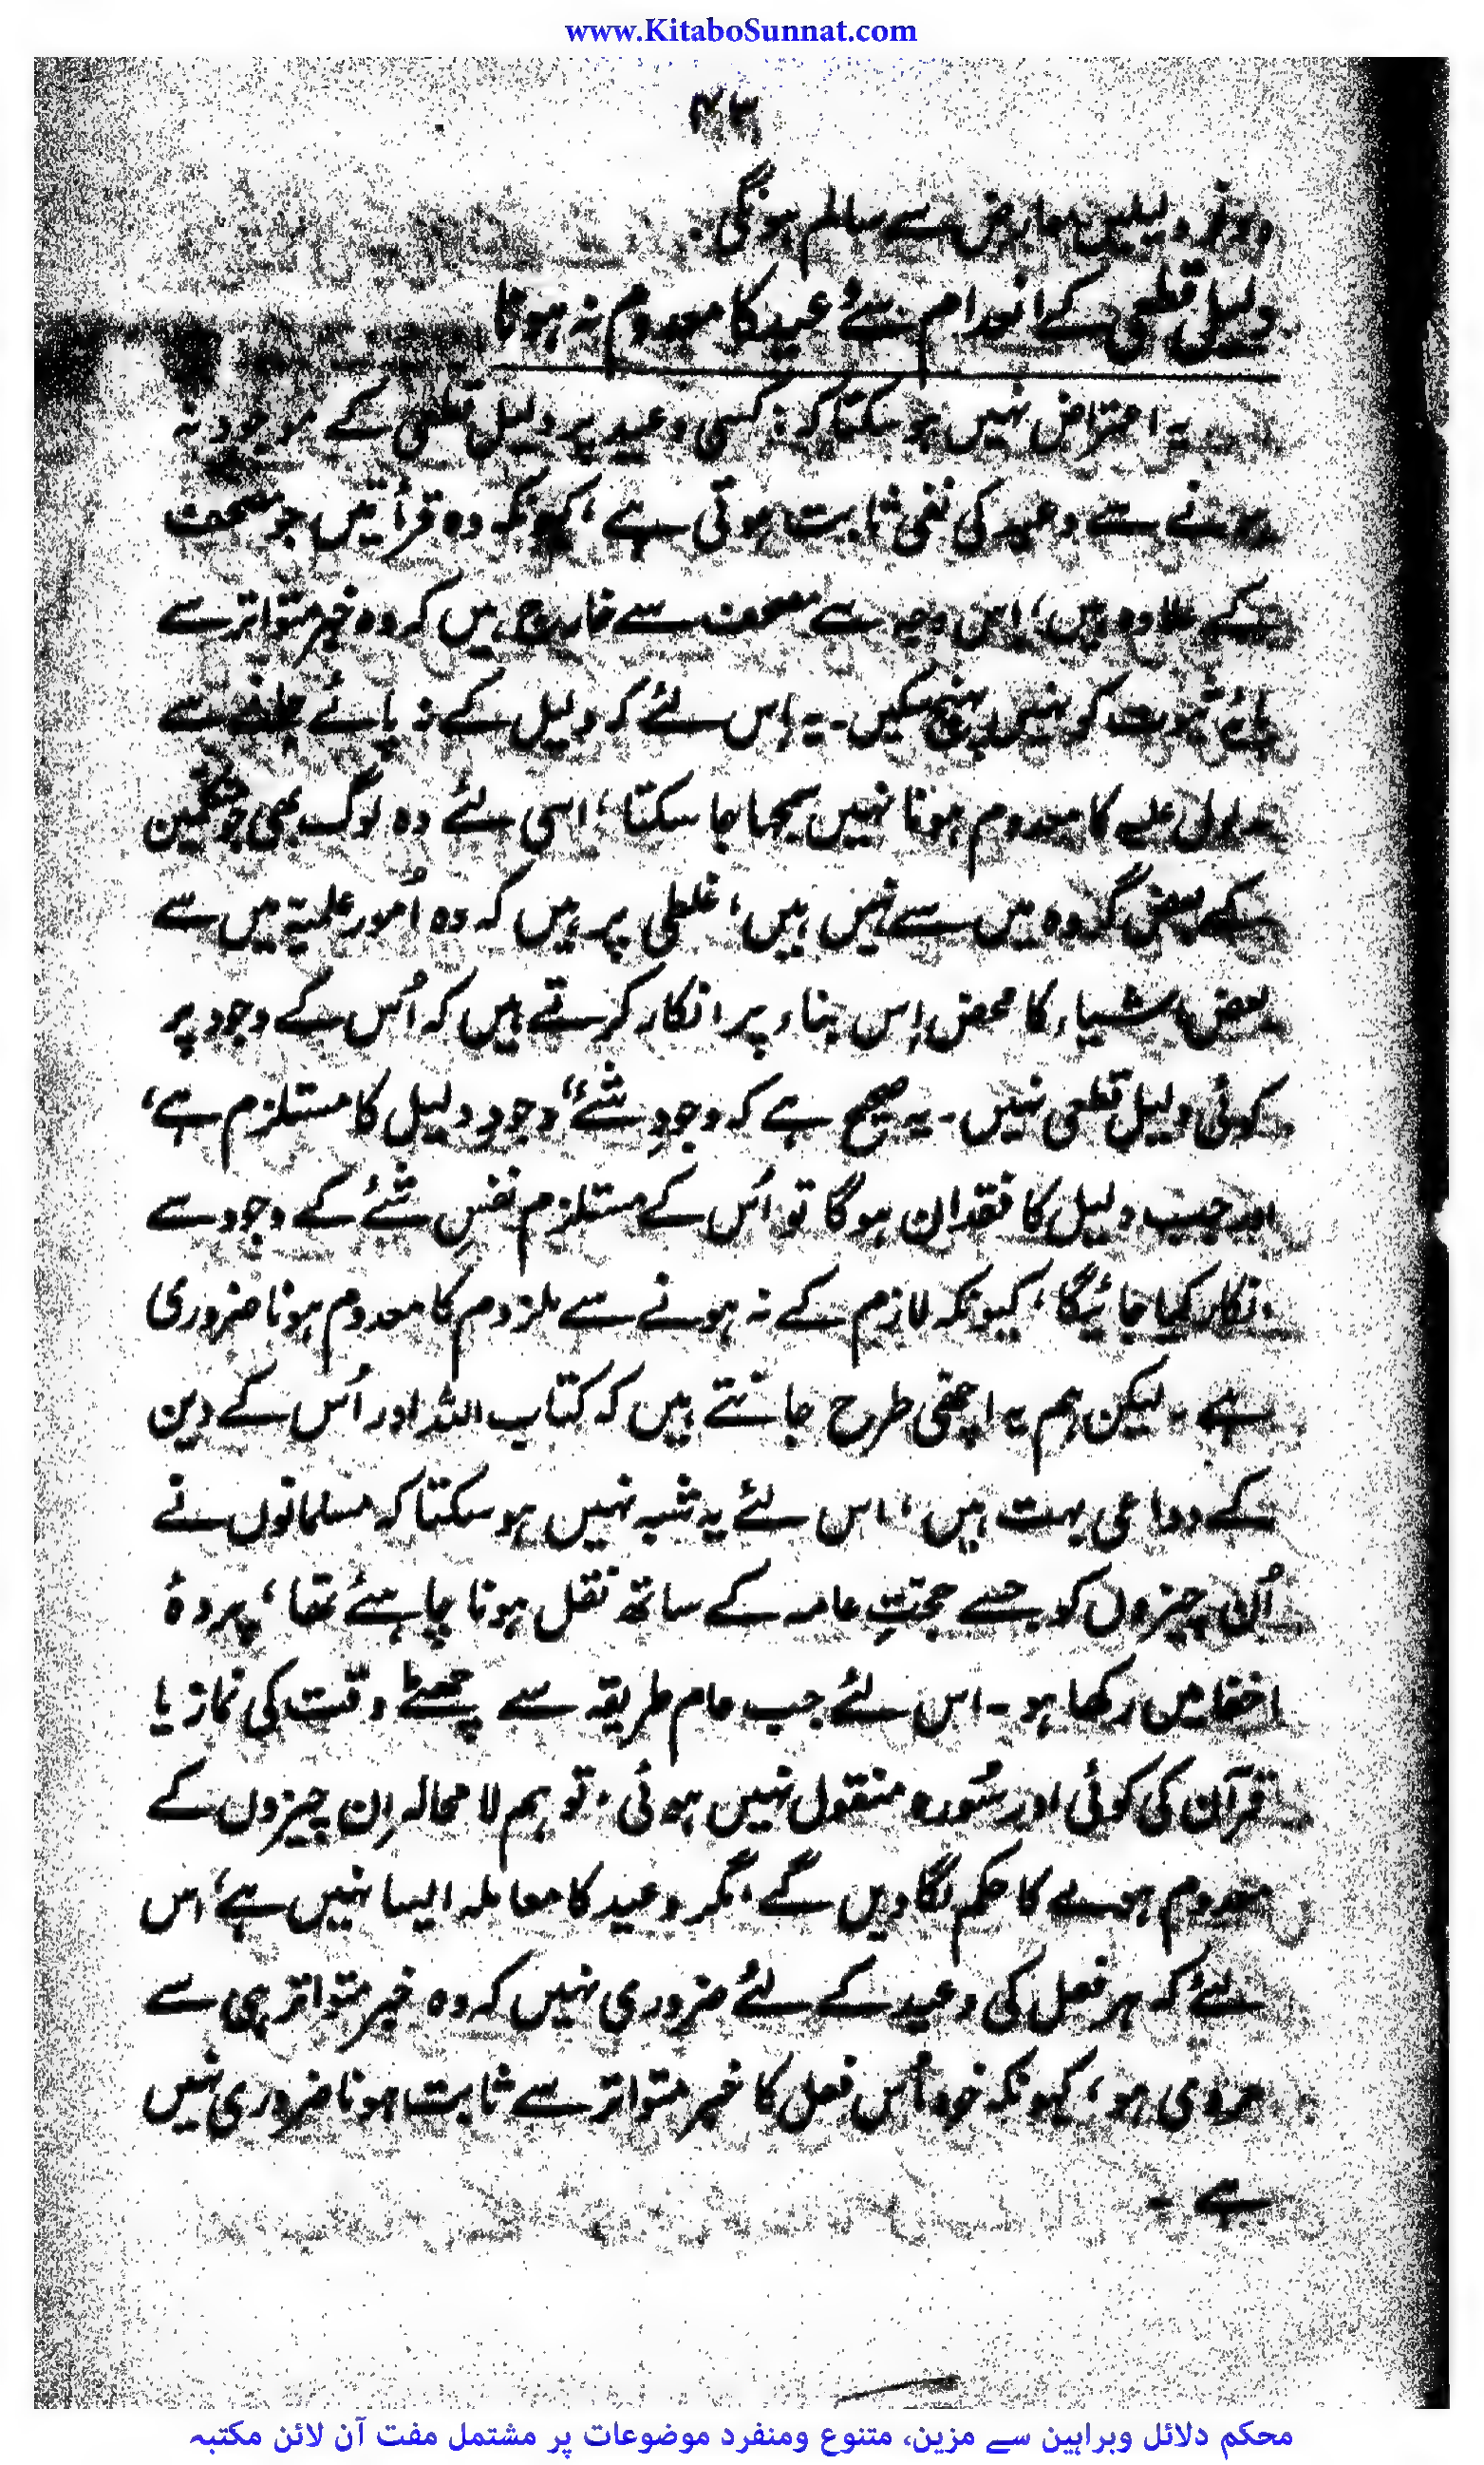 www.KitaboSunnat.com
دلیلیں معارض سے سالم ہونگی.
دلیل قطعی کے انعدام سے وعید کا معدوم نہ ہونا
یہ اعتراض نہیں ہو سکتا کہ : کسی وعید پر دلیل قطعی کے موجود نہ
ہونے سے وعید کی نفی ثابت ہوتی ہے ، کیونکہ وہ قرأتیں جو مصحف
کے علاوہ ہیں ، اس وجہ سے مصحف سے خارج ہیں کہ وہ خبر متواتر سے
پائے ثبوت کو نہیں پہنچ سکیں ۔ یہ اِس لئے کہ دلیل کے نہ پائے جانے سے
مدلول علیہ کا معدوم ہونا نہیں سمجھا جا سکتا ، اسی لئے وہ لوگ بھی جو متکلمین
کے بعض گروہ میں سے نہیں ہیں ، غلطی پر ہیں کہ وہ اُمور علمیۃ میں سے
بعض اشیاء کا محض اِس بناء پر انکار کرتے ہیں کہ اُس کے وجود پر
کوئی دلیل قطعی نہیں ۔ یہ صحیح ہے کہ وجودِ شئے ”وجودِ دلیل کا مستلزم ہے ،
اور جب دلیل کا فقدان ہوگا تو اُس کے مستلزم نفسِ شئے کے وجود سے
انکار کیا جائیگا ، کیونکہ لازم کے نہ ہونے سے ملزوم کا معدوم ہونا ضروری
ہے ۔ لیکن ہم یہ اچھی طرح جانتے ہیں کہ کتاب اللہ اور اُس کے دین
کے دواعی بہت ہیں ، اس لئے یہ شبہ نہیں ہو سکتا کہ مسلمانوں نے
اُن چیزوں کو جسے حجتِ عامہ کے ساتھ نقل ہونا چاہئے تھا ، پردۂ
اخفا میں رکھا ہو ۔ اس لئے جب عام طریقہ سے چھٹے وقت کی نماز یا
قرآن کی کوئی اور سُورہ منقول نہیں ہوئی ۔ تو ہم لا محالہ اِن چیزوں کے
معدوم ہونے کا حکم لگا دیں گے ، مگر وعید کا معاملہ ایسا نہیں ہے ، اس
لئے کہ ہر فعل کی وعید کے لئے ضروری نہیں کہ وہ خبر متواتر ہی سے
مروی ہو ، کیونکہ خود اُس فعل کا خبر متواتر سے ثابت ہونا ضروری نہیں
ہے ۔
محکم دلائل وبراہین سے مزین، متنوع ومنفرد موضوعات پر مشتمل مفت آن لائن مکتبہ